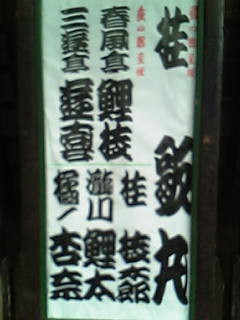 桂 歌丸
春風亭 鯉枝
三遊亭 遊喜
桂 枝太郎
瀧川 鯉太
橘ノ 杏奈